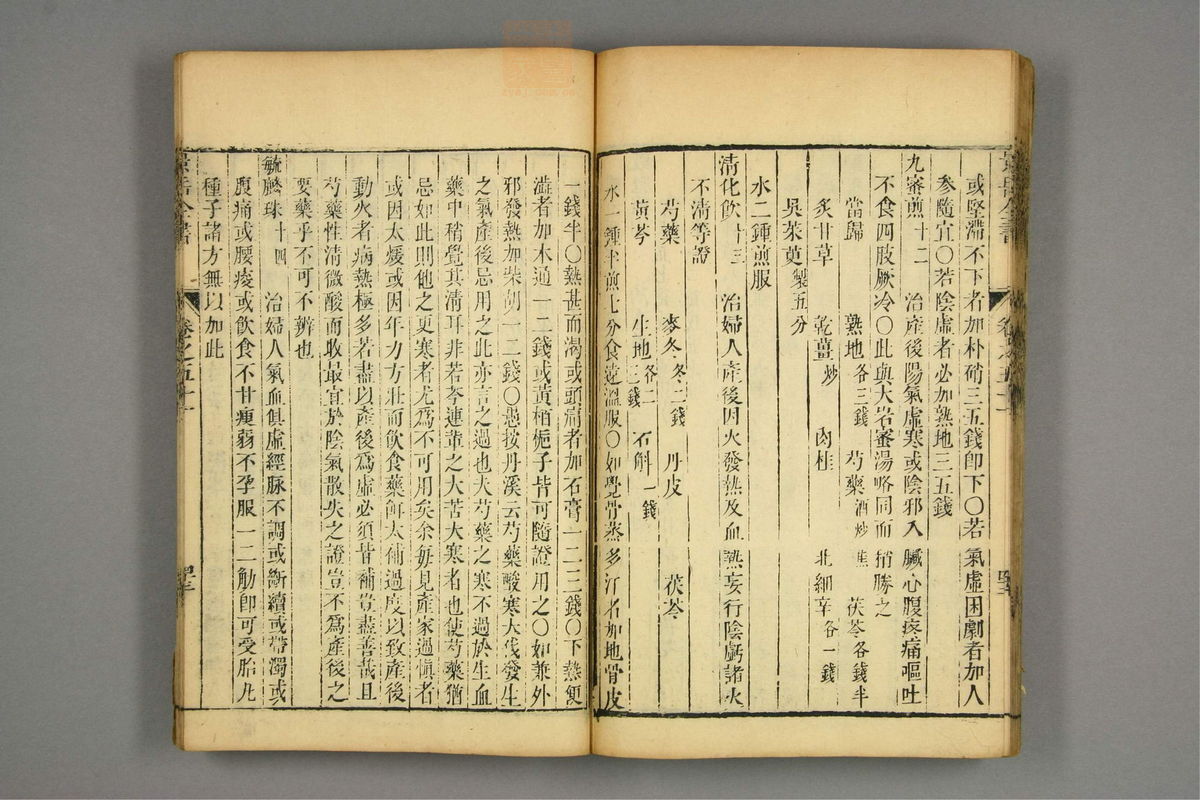 或堅滯不下者加朴硝三五錢卽下〇若氣虛困劇者加人
參隨宜〇若陰虛者必加熟地三五錢
九蜜煎十二 治產後陽氣虛寒或陰邪入臟心腹疼痛嘔吐
不食四肢厥冷〇此與大岩蜜湯略同而稍勝之
當歸 熟地各三錢 芍藥酒炒焦 茯苓各錢半
炙甘草 乾薑炒 肉桂 北細辛各一錢
吳茱萸製五分
水二鍾煎服
清化飲十三 治婦人產後因火發熱及血熱妄行陰虧諸火
不清等證
芍藥 麥冬各二錢 丹皮 茯苓
黃芩 生地各二三錢 石斛一錢
水一鍾半煎七分食遠溫服〇如覺骨蒸多汗者加地骨皮
一錢半〇熱甚而渴或頭痛者加石膏一二三錢〇下熱便
澁者加木通一二錢或黃栢梔子皆可隨證用之〇如兼外
邪發熱加柴胡一二錢〇愚按丹溪云芍藥酸寒大伐發生
之氣產後忌用之此亦言之過也夫芍藥之寒不過於生血
藥中稍覺其清耳非若芩連輩之大苦大寒者也使芍藥猶
忌如此則他之更寒者尤爲不可用矣余每見產家過愼者
或因太煖或因年力方壯而飲食藥餌太補過度以致產後
動火者病熱極多若盡以產後爲虛必須皆補豈盡善哉且
芍藥性清微酸而收最宜於陰氣散失之證豈不爲產後之
要藥乎不可不辨也
毓麟珠十四 治婦人氣血俱虛經脉不調或斷續或帶濁或
腹痛或腰痠或飲食不甘瘦弱不孕服一二觔卽可受胎凡
種子諸方無以加此
景岳全書 卷之五十一